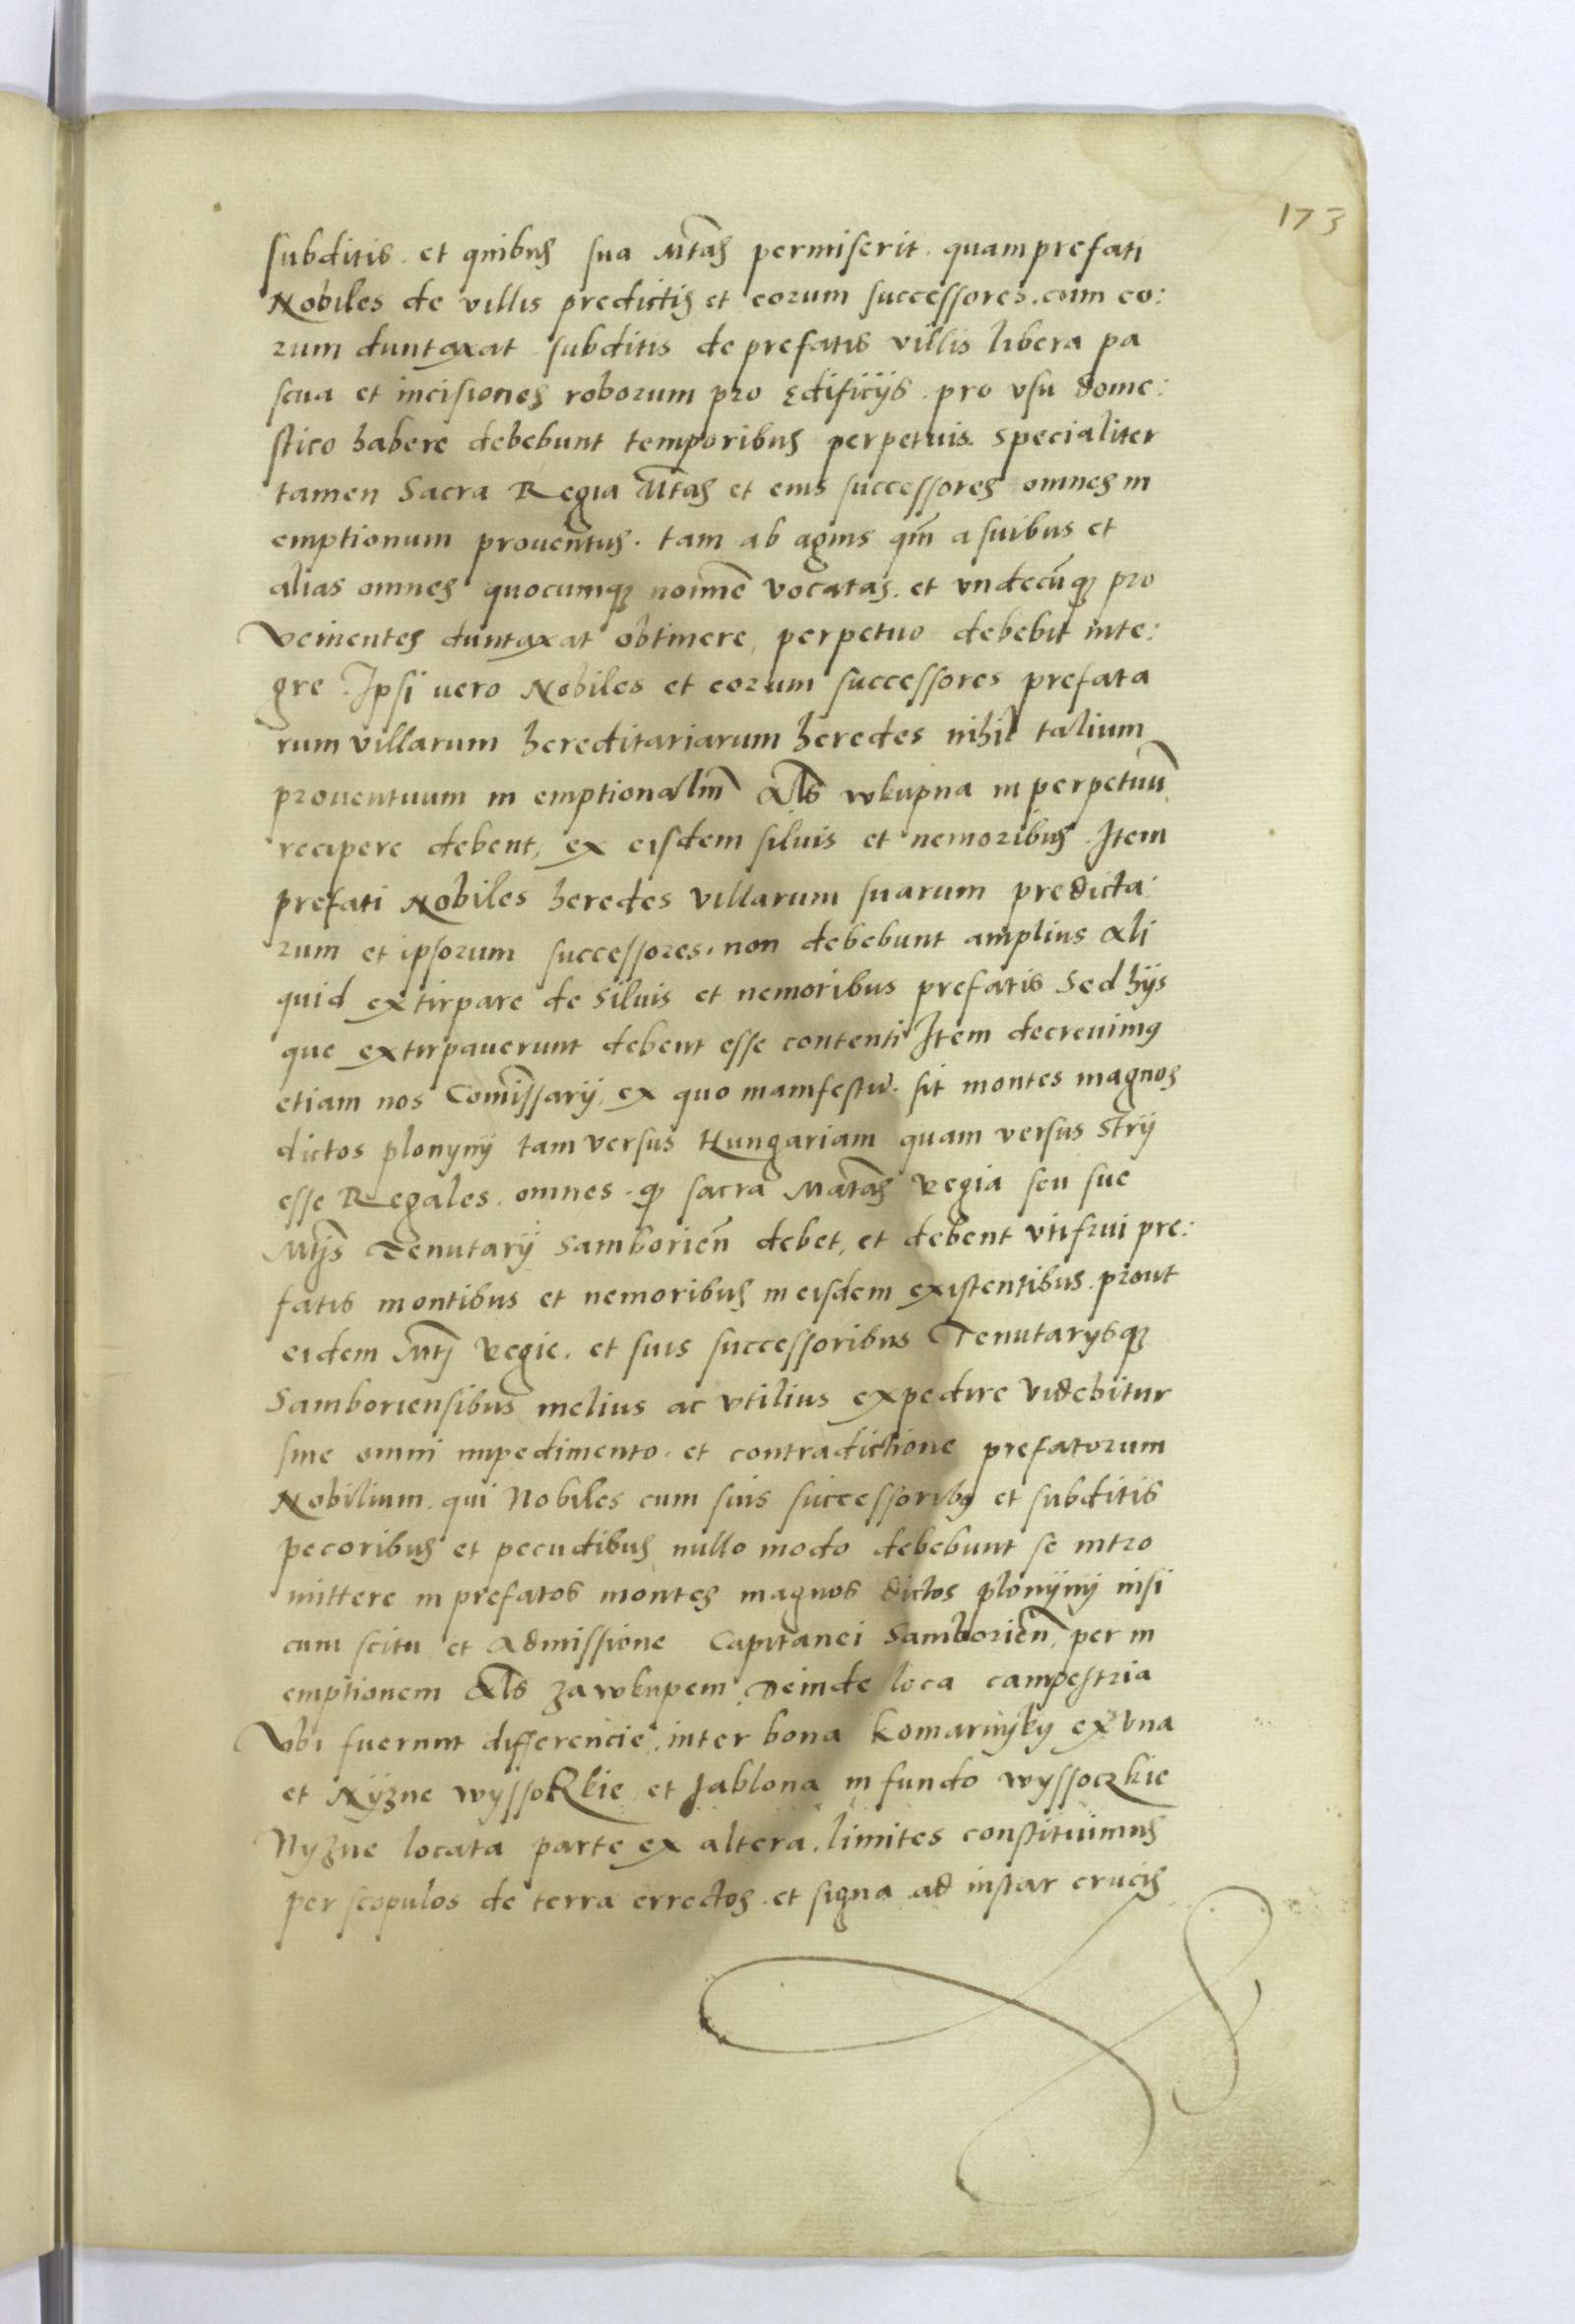 173
subditis . et quibus sua Mtas permiserit . quam prefati
Nobiles de villis predictis et eorum successores . cum eo:
rum duntaxat subditis de prefatis villis libera pa
scua et incisiones roborum pro ędificijs . pro vsu dome:
stico habere debebunt temporibus perpetuis . specialiter
tamen Sacra Regia Mtas et eius successores omnes in
emptionum prouentus . tam ab agnis qm̄ a suibus et
alias omnes quocumq; noīmē vocatas . et vndecūq; pro
venientes duntaxat obtinere, perpetuo debebit inte:
gre . Ipsi uero Nobiles et eorum successores prefata
rum villarum hereditariarum heredes nihil talium
prouentuum in emptionalīm als wkupna in perpetuū
recipere debent, ex eisdem siluis et nemoribus . Item
prefati Nobiles heredes villarum suarum predicta:
rum et ipsorum successores . non debebunt amplius ali
quid extirpare de siluis et nemoribus prefatis Sed hijs
que extirpauerunt debent esse contenti Item decreuimus
etiam nos Comīssarij, ex quo manifestū . sit montes magnos
dictos plonynÿ tam versus Hungariam quam versus Strÿ
esse Regales . omnes . q; sacra Matas Regia seu sue
Mtis Tenutarij Samborieñ debet, et debent vtifrui pre:
fatis montibus et nemoribus in eisdem existentibus . prout
eidem Mti Regie . et suis successoribus Tenutarysq;
Samboriensibus melius ac vtilius expedire videbitur
sine omni impedimento . et contradictione prefatorum
Nobilium . qui Nobiles cum suis successoribus et subditis
pecoribus et pecudibus nullo modo debebunt se intro
mittere in prefatos montes magnos dictos plonÿnÿ nisi
cum scitu et admissione Capitanei Samborieñ, per in
emptionem als zawkupem . Deinde loca campestria
Vbi fuerunt differencie . inter bona Komarnÿky ex vna
et Nÿzne wyssoczkie et Jablona in fundo wyssoczkie
Nyzne locata parte ex altera . limites constituimus
per scopulos de terra errectos . et signa ad instar crucis